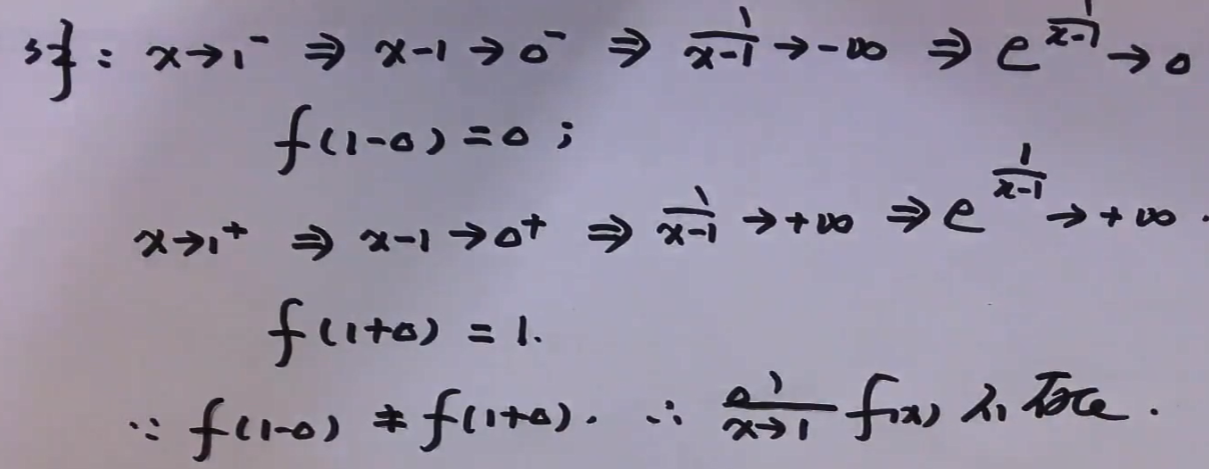 解：x→1⁻ ⇒ x-1→0⁻ ⇒ 1/(x-1)→-∞ ⇒ e^(1/(x-1))→0
f(1-0)=0;
x→1⁺ ⇒ x-1→0⁺ ⇒ 1/(x-1)→+∞ ⇒ e^(1/(x-1))→+∞.
f(1+0)=1.
∵ f(1-0)≠f(1+0). ∴ x→1 f(x) 不存在.